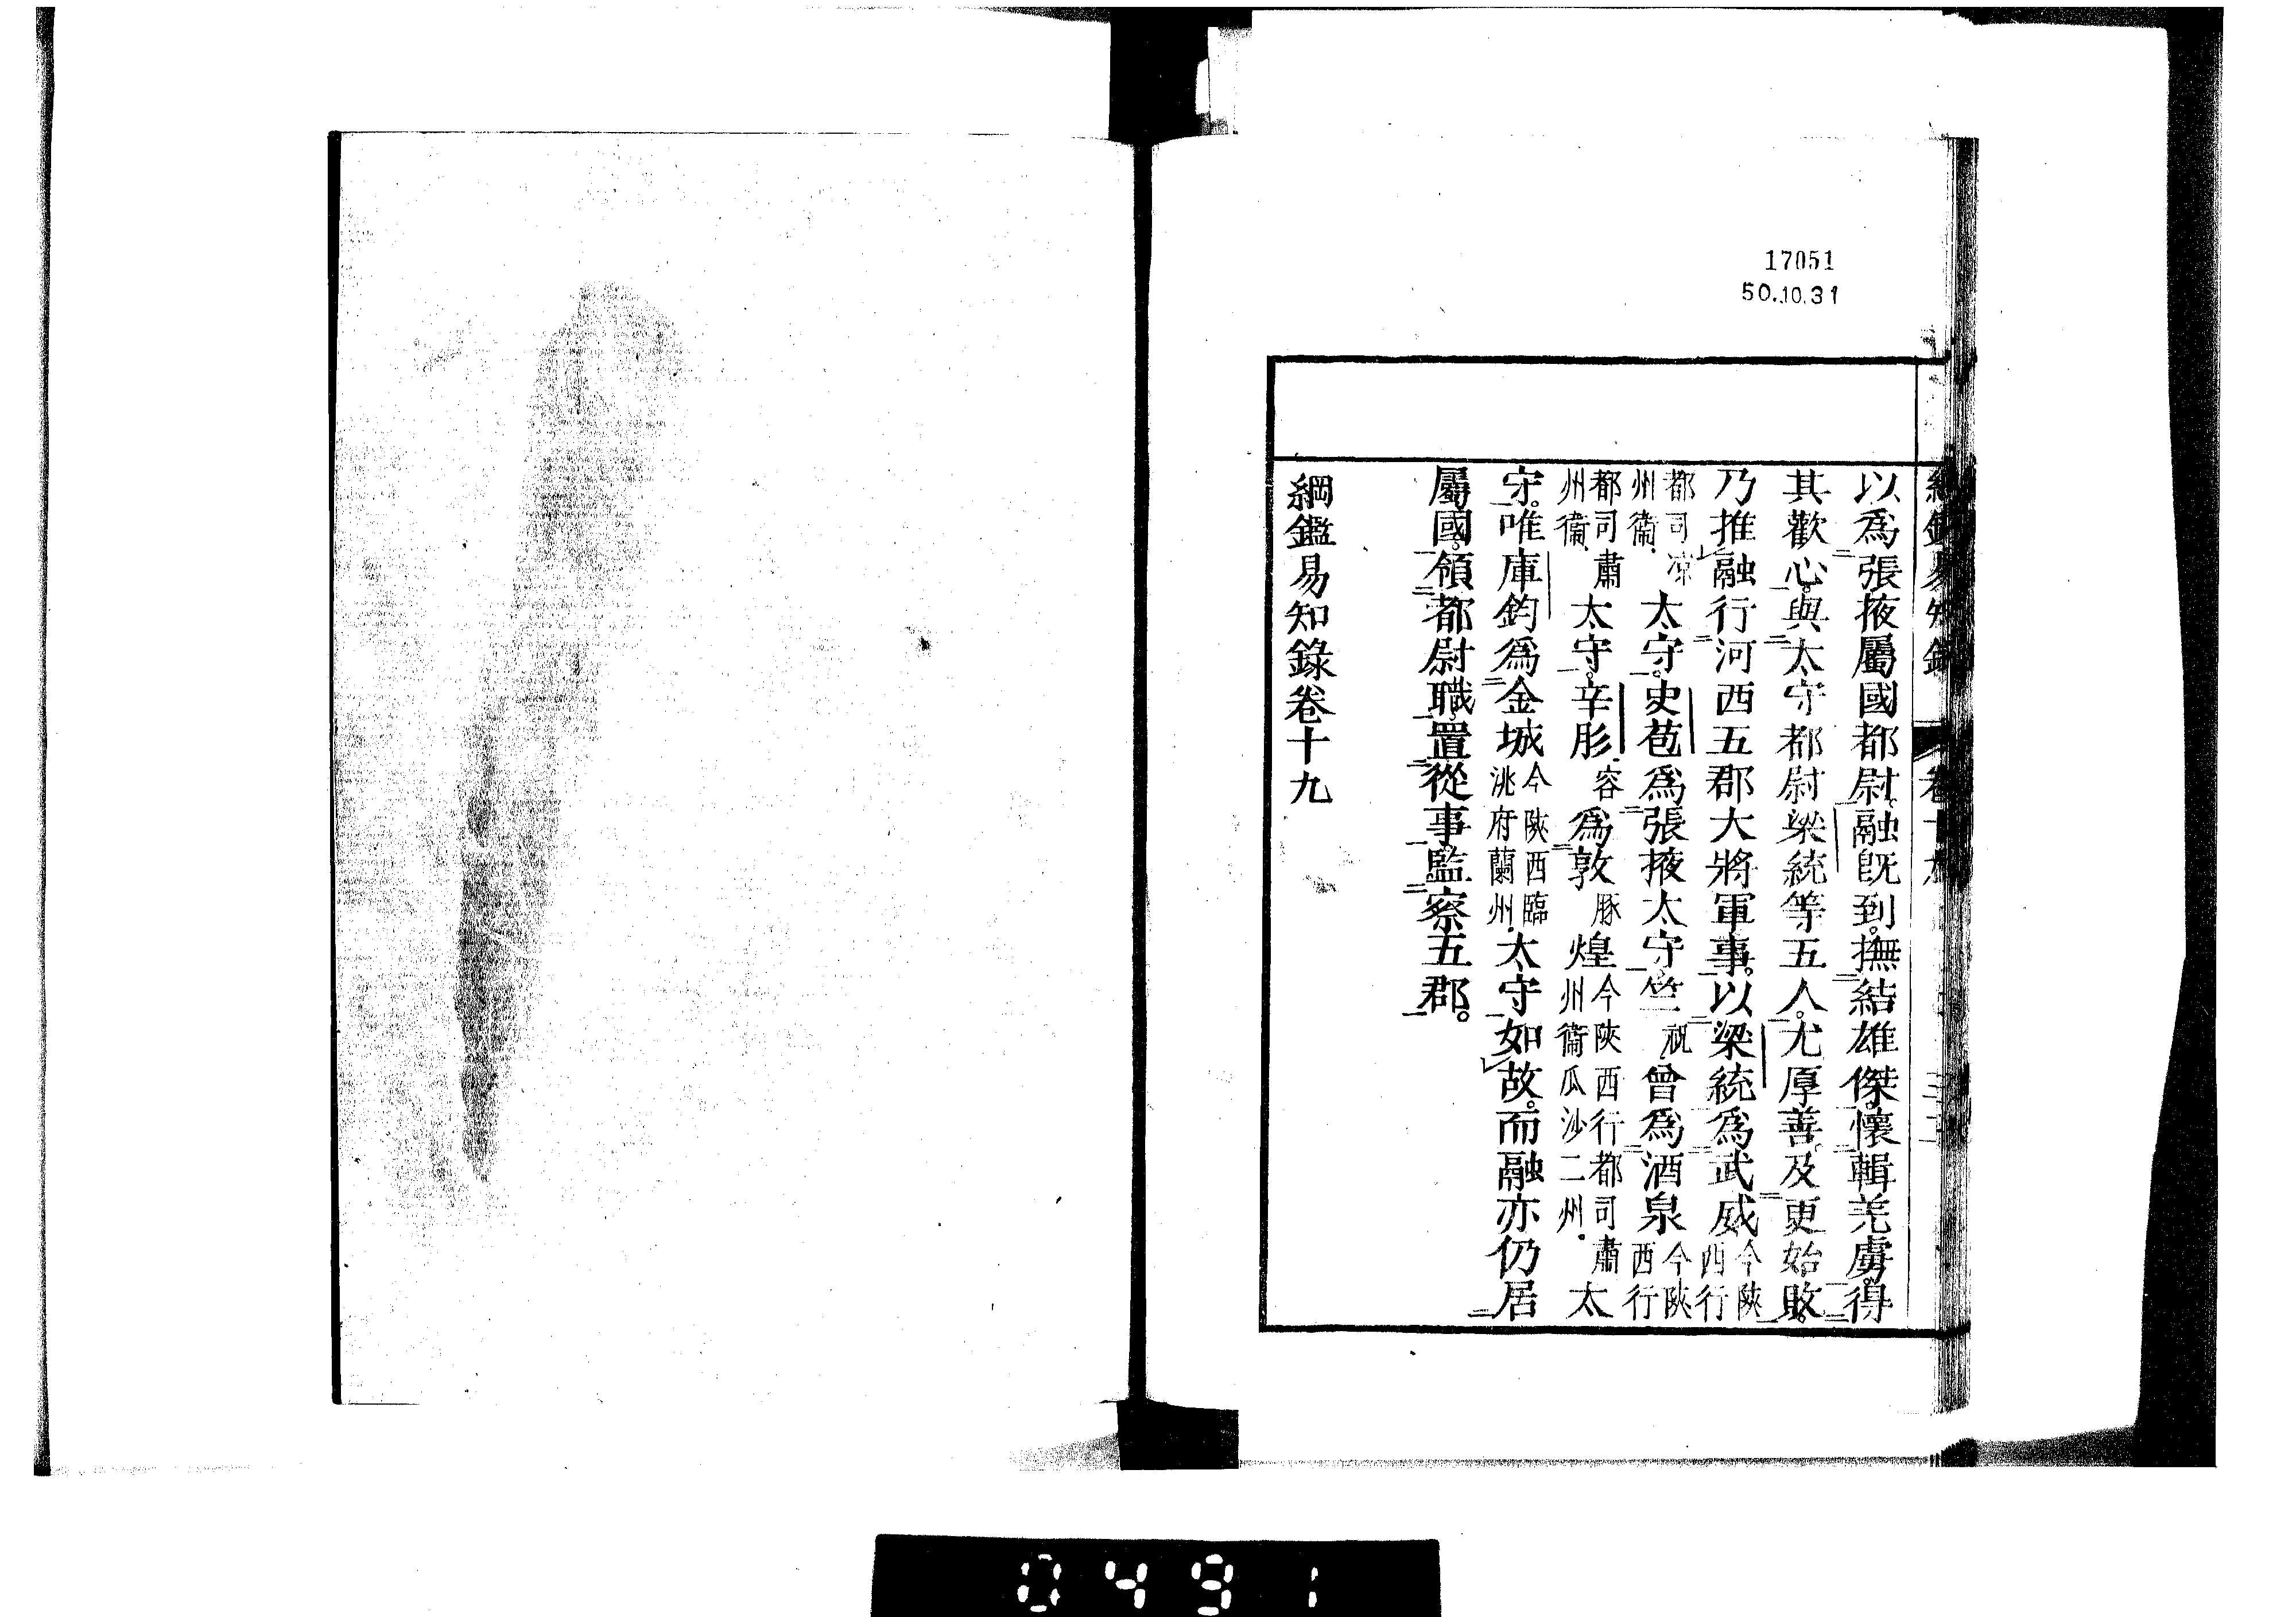 17051
50.10.31
以爲張掖屬國都尉。融旣到。撫結雄傑。懷輯羌虜。得
其歡心。與太守都尉梁統等五人。尤厚善。及更始敗。
乃推融行河西五郡大將軍事。以梁統爲武威今陝西行
都司涼州衞.太守。史苞爲張掖太守。竺祝曾爲酒泉今陝西行
都司肅州衞.太守。辛肜.容爲敦豚煌今陝西行都司肅州衞瓜沙二州.太
守。唯庫鈞爲金城今陝西臨洮府蘭州.太守如故。而融亦仍居
屬國。領都尉職。置從事監察五郡。
綱鑑易知錄卷十九
0491